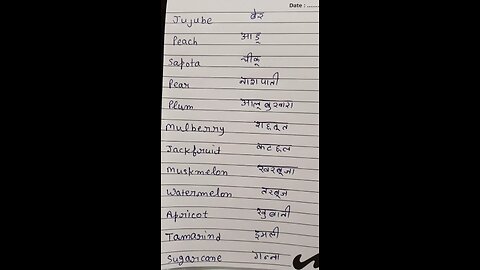 Date : ......
Jujube बेर
Peach आड़ू
Sapota चीकू
Pear नाशपाती
Plum आलू बुखारा
Mulberry शहतूत
Jackfruit कटहल
Muskmelon खरबूजा
Watermelon तरबूज
Apricot खुबानी
Tamarind इमली
Sugarcane गन्ना